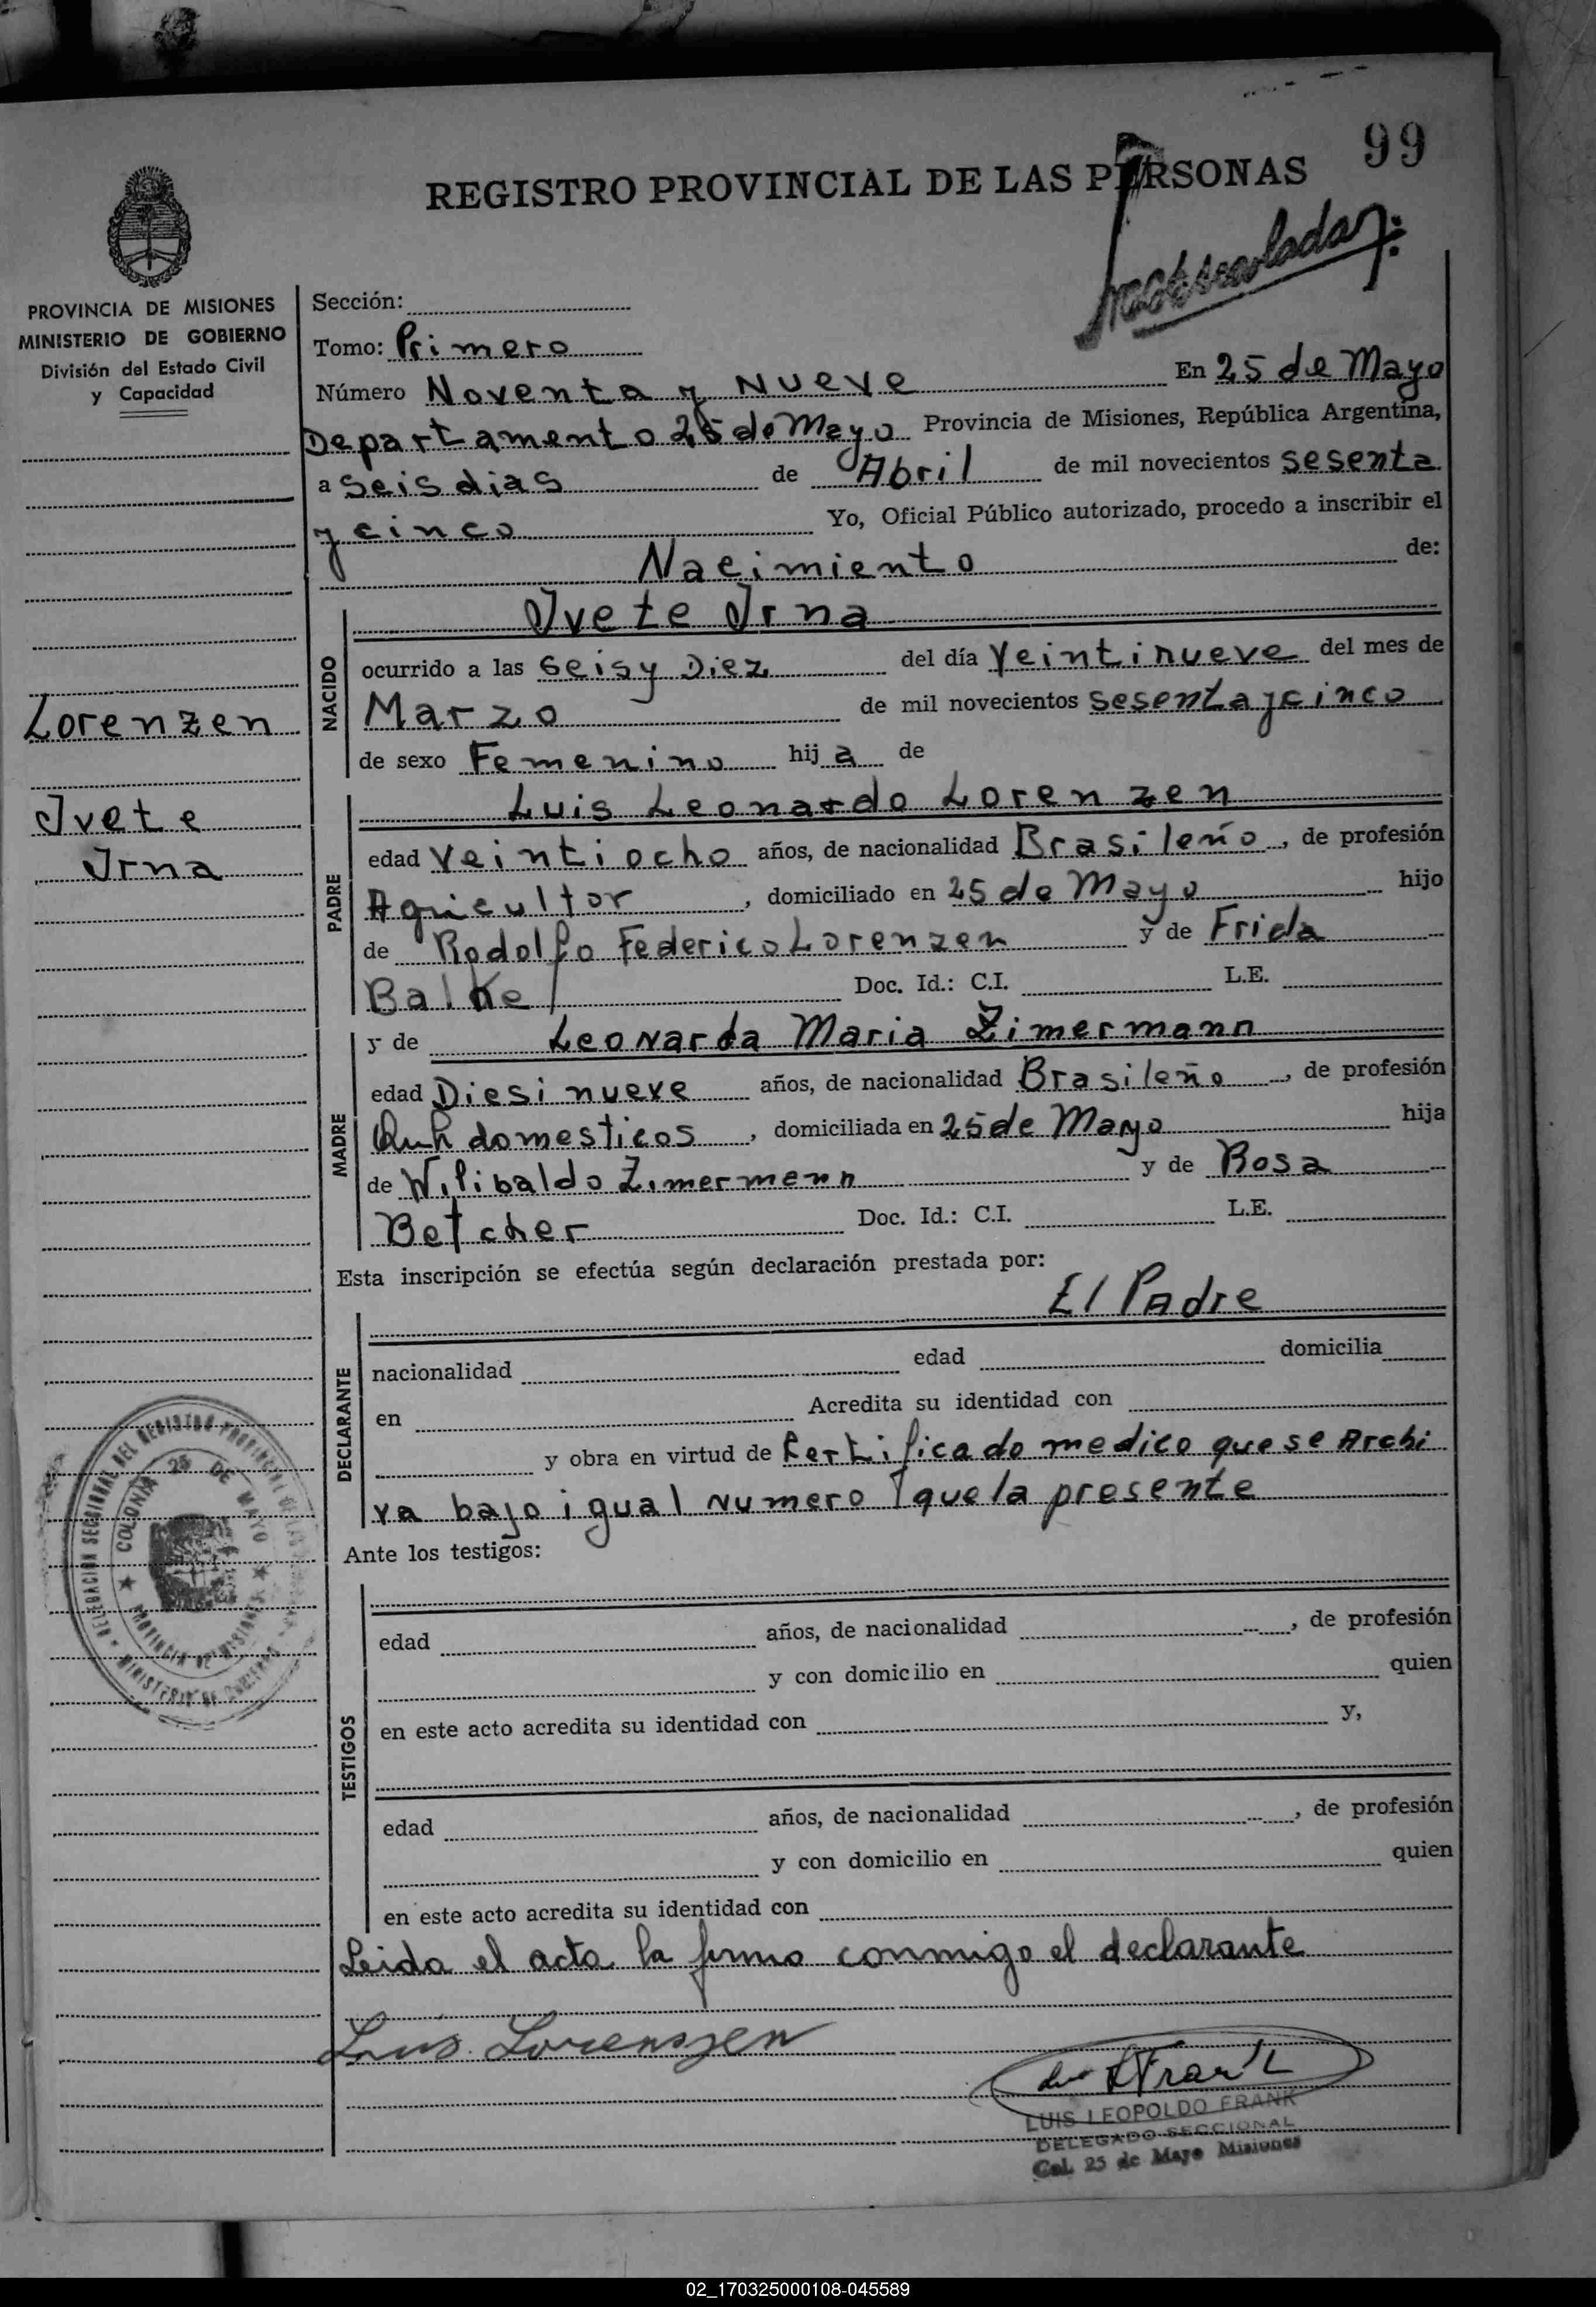 99
REGISTRO PROVINCIAL DE LAS PERSONAS
PROVINCIA DE MISIONES
MINISTERIO DE GOBIERNO
División del Estado Civil
y Capacidad
Lorenzen
Ivete
Irna
Sección:
Tomo: Primero
Número Noventa y Nueve En 25 de Mayo
Departamento 25 de Mayo Provincia de Misiones, República Argentina,
a seis dias de Abril de mil novecientos sesenta
y cinco Yo, Oficial Público autorizado, procedo a inscribir el
Nacimiento de:
NACIDO
Ivete Irna
ocurrido a las seis y Diez del día Veintinueve del mes de
Marzo de mil novecientos sesenta y cinco
de sexo Femenino hija de
PADRE
Luis Leonardo Lorenzen
edad Veintiocho años, de nacionalidad Brasileño, de profesión
Agricultor, domiciliado en 25 de Mayo hijo
de Rodolfo Federico Lorenzen y de Frida
Balke Doc. Id.: C.I. L.E.
MADRE
y de Leonarda Maria Zimermann
edad Diesinueve años, de nacionalidad Brasileño, de profesión
domesticos, domiciliada en 25 de Mayo hija
de Wilibaldo Zimermenn y de Rosa
Betcher Doc. Id.: C.I. L.E.
Esta inscripción se efectúa según declaración prestada por:
DECLARANTE
El Padre
nacionalidad edad domicilia
en Acredita su identidad con
y obra en virtud de Certificado medico que se Archi
va bajo igual numero que la presente
Ante los testigos:
TESTIGOS
edad años, de nacionalidad , de profesión
y con domicilio en quien
en este acto acredita su identidad con y,
edad años, de nacionalidad , de profesión
y con domicilio en quien
en este acto acredita su identidad con
Leida el acta la firma conmigo el declarante
Luis Lorenszen
LUIS LEOPOLDO FRANK
DELEGADO SECCIONAL
Col. 25 de Mayo Misiones
DELEGACION SECCIONAL DEL REGISTRO PROVINCIAL DE LAS
COLONIA 25 DE MAYO
PROVINCIA DE MISIONES
MINISTERIO DE GOBIERNO
02_170325000108-045589